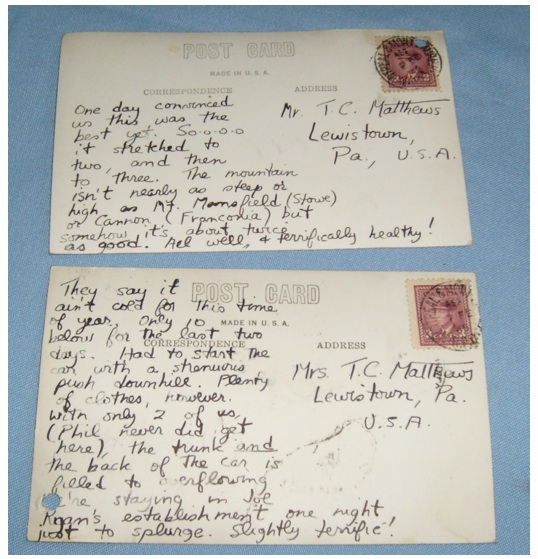 POST CARD
MADE IN U.S.A.
CORRESPONDENCE
ADDRESS
One day convinced
us this was the
best yet. So-o-o-o
it stretched to
two, and then
to three. The mountain
isn't nearly as steep or
high as Mt. Mansfield (Stowe)
or Cannon (Franconia) but
somehow it's about twice
as good. Ael well, & terrifically healthy!
Mr. T.C. Matthews
Lewistown,
Pa., U.S.A.
POST CARD
MADE IN U.S.A.
CORRESPONDENCE
ADDRESS
They say it
ain't cold for this time
of year. Only 10
below for the last two
days. Had to start the
car with a
push downhill. Plenty
of clothes, however.
with only 2 of us,
(Phil never did get
here), the trunk and
the back of the car is
filled to overflowing
We're staying in Joe
Ryan's establishment one night
just to splurge. Slightly terrific!
Mrs. T.C. Matthews
Lewistown, Pa.
U.S.A.